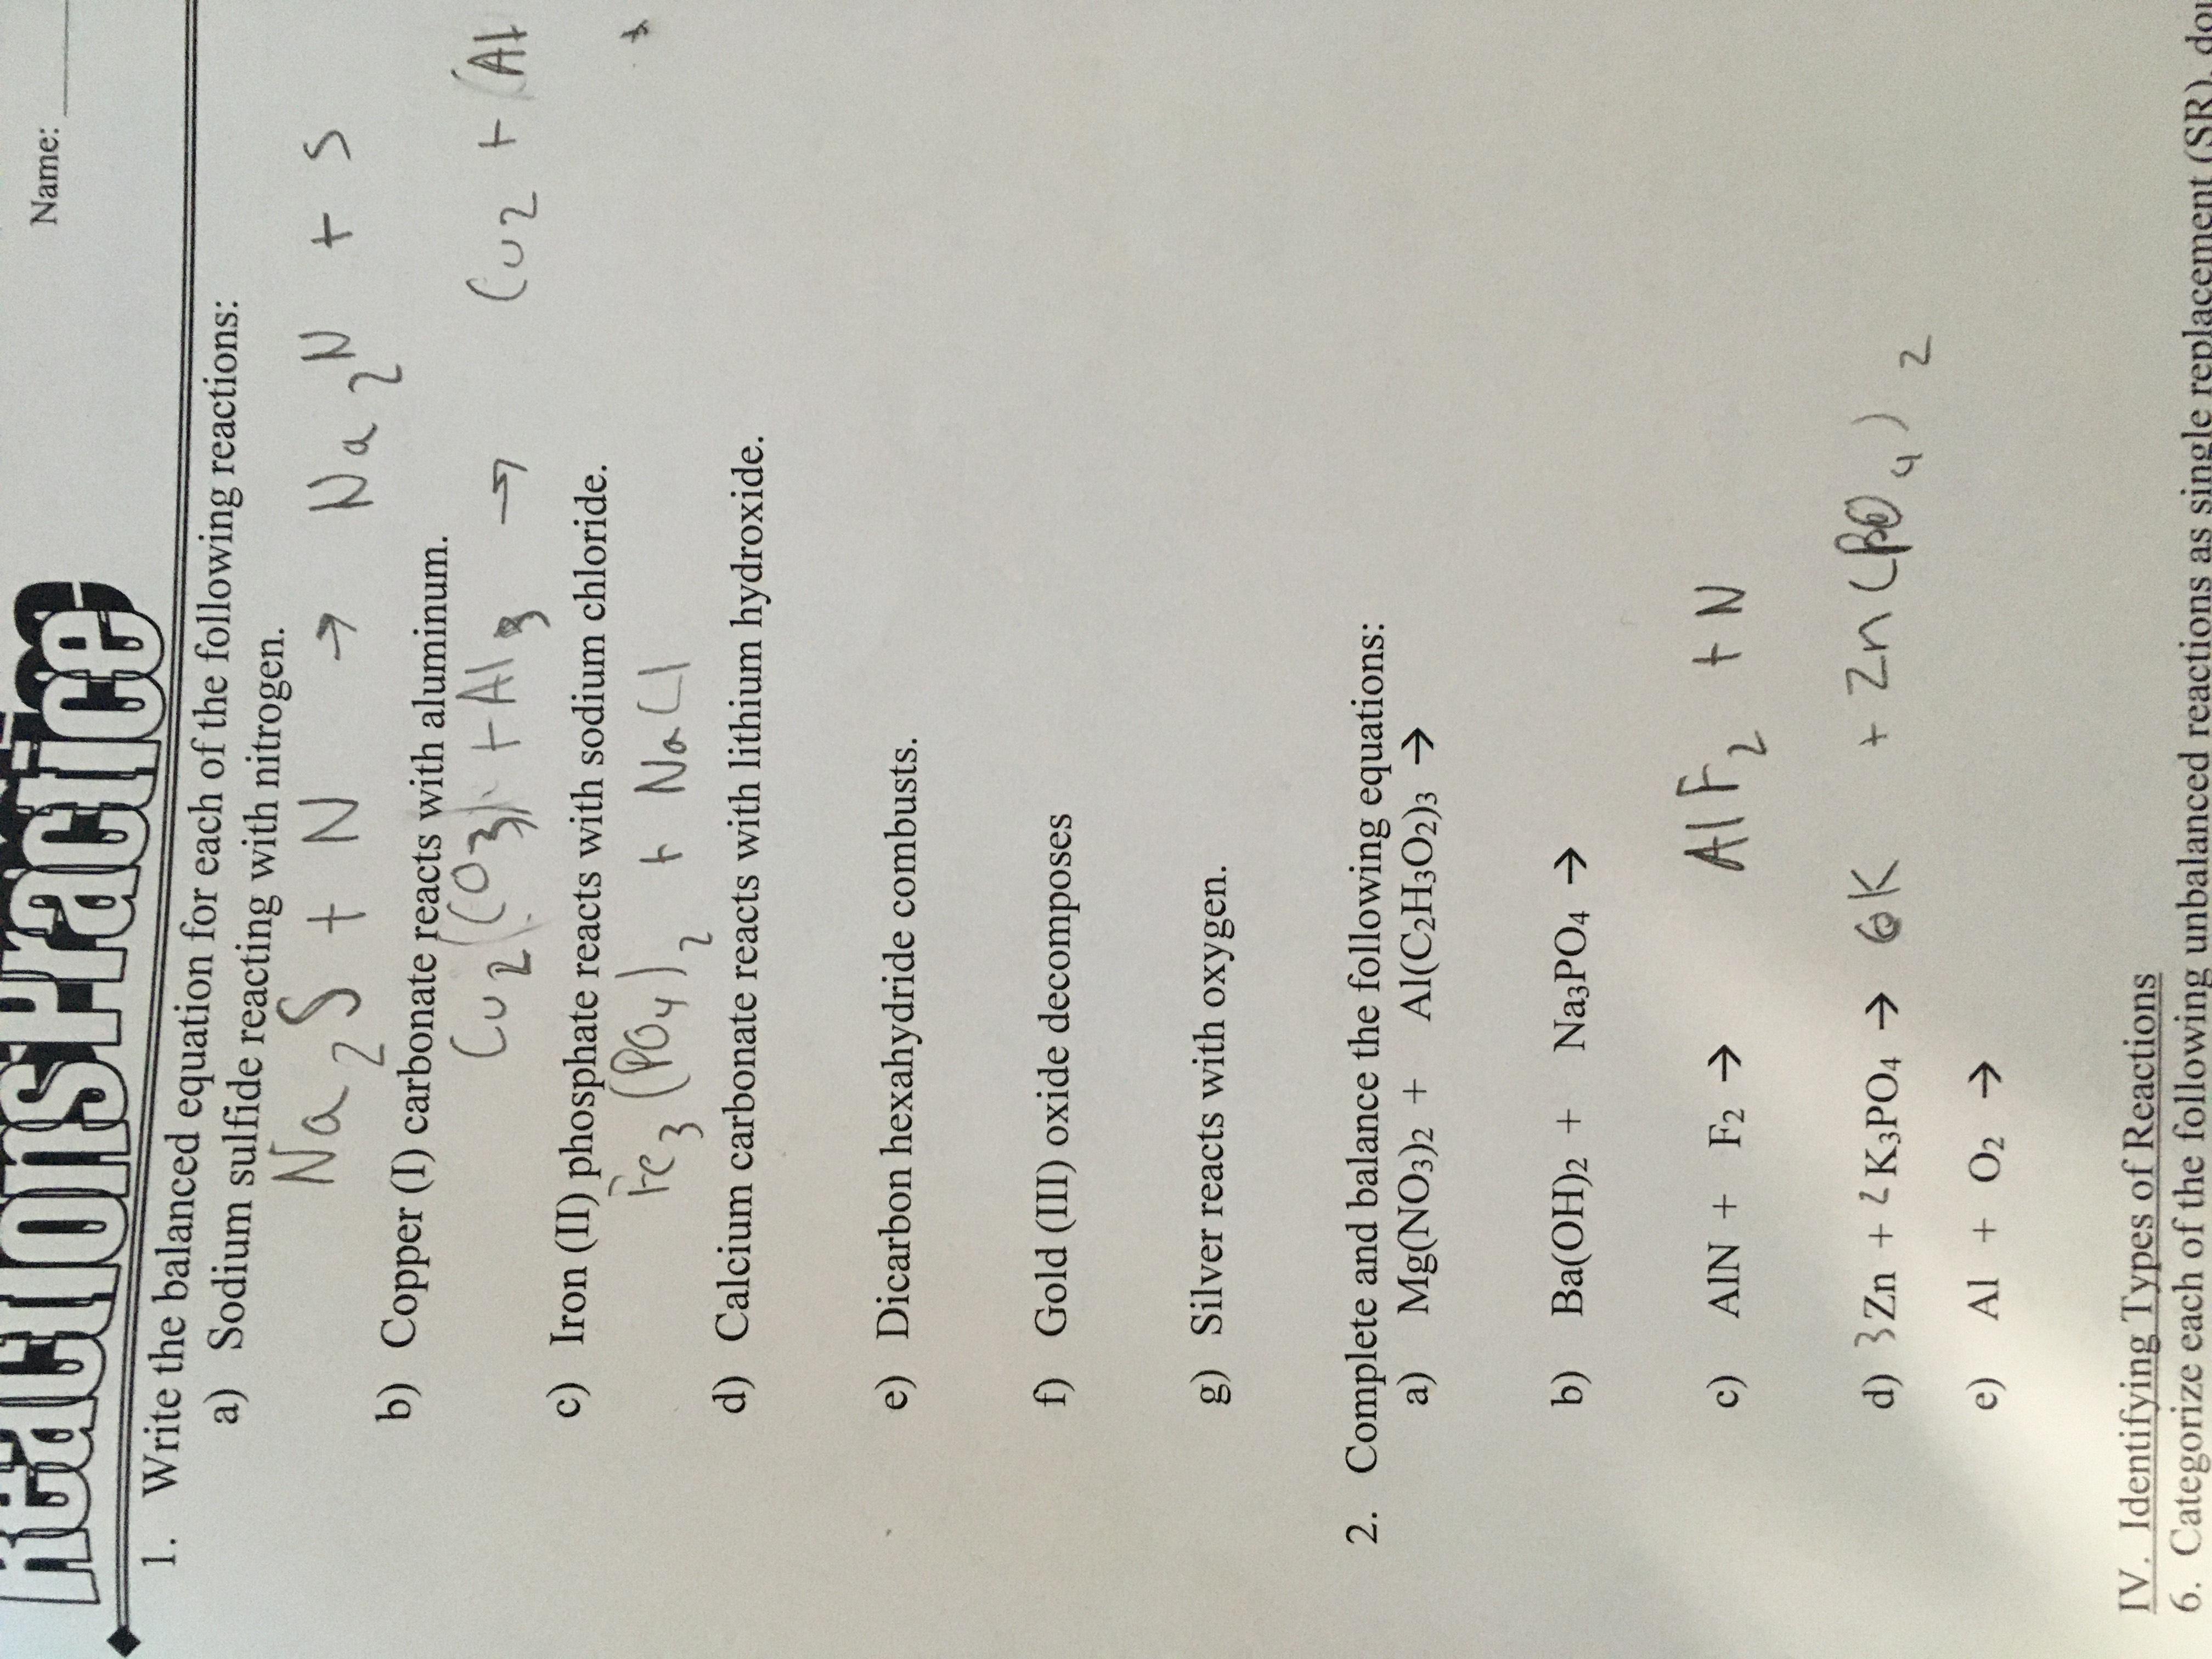 Name:
Reactions Practice
1. Write the balanced equation for each of the following reactions:
a) Sodium sulfide reacting with nitrogen.
Na2S + N → Na2N + S
b) Copper (I) carbonate reacts with aluminum.
Cu2(CO3) + Al3 → Cu2 + (Al
c) Iron (II) phosphate reacts with sodium chloride.
Fe3(PO4)2 + NaCl
d) Calcium carbonate reacts with lithium hydroxide.
e) Dicarbon hexahydride combusts.
f) Gold (III) oxide decomposes
g) Silver reacts with oxygen.
2. Complete and balance the following equations:
a) Mg(NO3)2 + Al(C2H3O2)3 →
b) Ba(OH)2 + Na3PO4 →
c) AlN + F2 → AlF2 + N
d) 3Zn + 2K3PO4 → 6K + Zn(PO4)2
e) Al + O2 →
IV. Identifying Types of Reactions
6. Categorize each of the following unbalanced reactions as single replacement (SR), dou